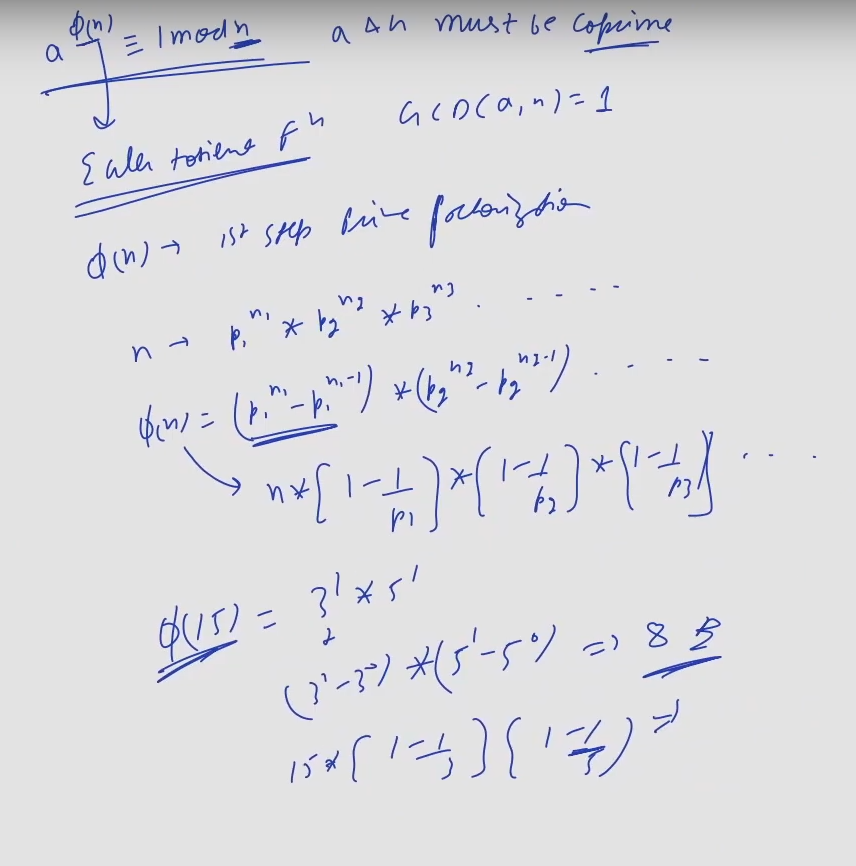 a^φ(n) ≡ 1 mod n   a & n must be coprime
GCD(a,n) = 1
Euler totient f^n
φ(n) → 1st step prime factorization
n → p₁^n₁ * p₂^n₂ * p₃^n₃ . - - - -
φ(n) = (p₁^n₁ - p₁^n₁-1) * (p₂^n₂ - p₂^n₂-1) . - - -
n * [1 - 1/p₁] * [1 - 1/p₂] * [1 - 1/p₃] . . .
φ(15) = 3^1 * 5^1
(3^1 - 3^0) * (5^1 - 5^0) => 8
15 * [1 - 1/3] [1 - 1/5] =>